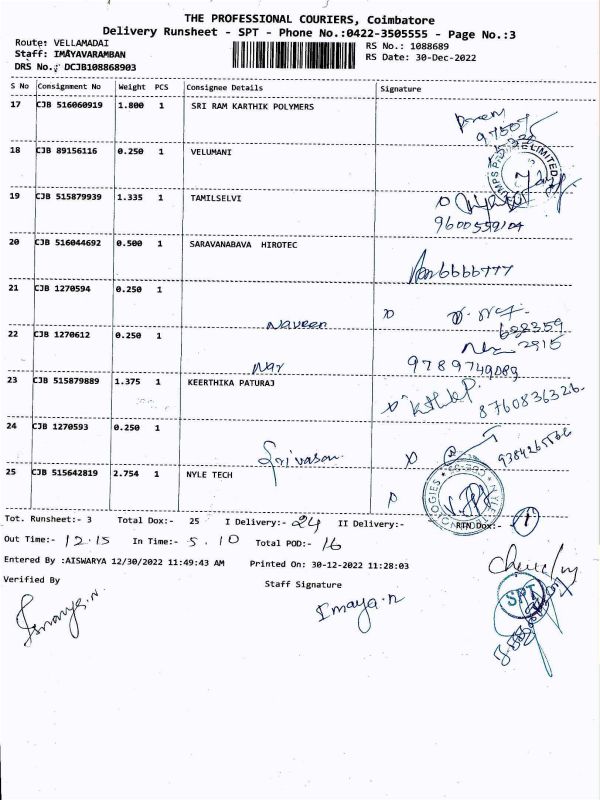 THE PROFESSIONAL COURIERS, Coimbatore
Delivery Runsheet - SPT - Phone No.:0422-3505555 - Page No.:3
Route: VELLAMADAI
Staff: IMAYAVARAMBAN
DRS No.: DCJB108868903
RS No.: 1088689
RS Date: 30-Dec-2022
S No Consignment No Weight PCS Consignee Details Signature
17 CJB 516060919 1.800 1 SRI RAM KARTHIK POLYMERS
18 CJB 89156116 0.250 1 VELUMANI
19 CJB 515879939 1.335 1 TAMILSELVI
9600559104
20 CJB 516044692 0.500 1 SARAVANABAVA HIROTEC
21 CJB 1270594 0.250 1
Naveen
628359
22 CJB 1270612 0.250 1
2915
9789749089
23 CJB 515879889 1.375 1 KEERTHIKA PATURAJ
8760836326
24 CJB 1270593 0.250 1
Srivasan
25 CJB 515642819 2.754 1 NYLE TECH
Tot. Runsheet:- 3 Total Dox:- 25 I Delivery:- 24 II Delivery:- RTN Dox:- 1
Out Time:- 12.15 In Time:- 5.10 Total POD:- 16
Entered By :AISWARYA 12/30/2022 11:49:43 AM Printed On: 30-12-2022 11:28:03
Verified By Staff Signature
Imaya.n
SPT